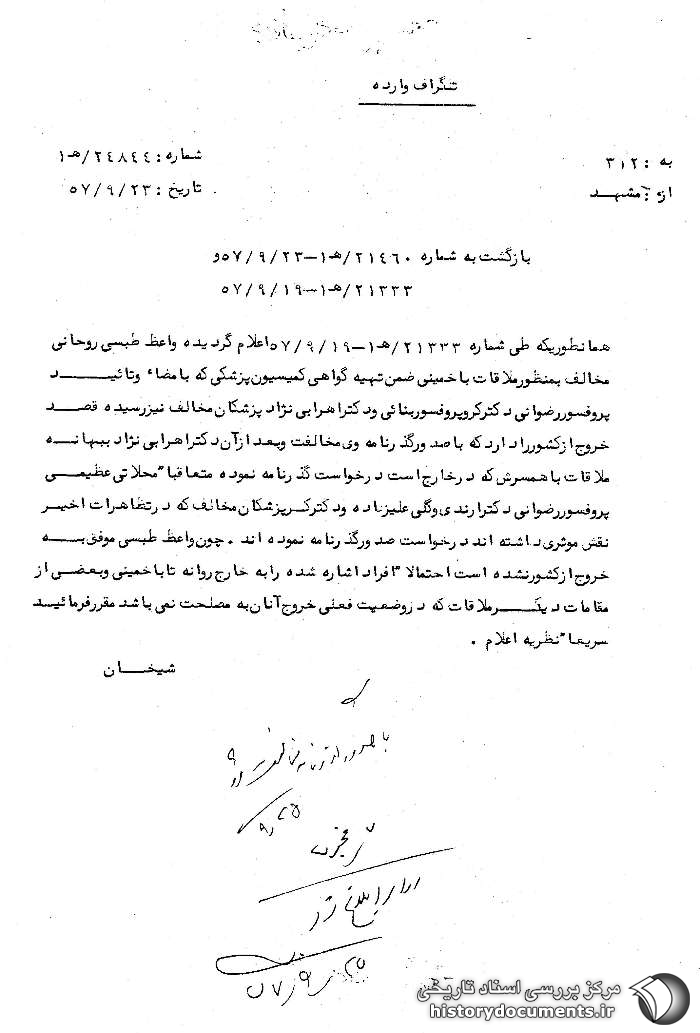 تلگراف وارده
به : ۳۱۲
شماره : ۲٤۸٤٤/هـ۱
از : مشهد
تاریخ : ۵۷/۹/۲۳
بازگشت به شماره ۲۱٤٦۰/هـ۱-۵۷/۹/۲۳و
۲۱۳۳۳/هـ۱-۵۷/۹/۱۹
همانطوریکه طی شماره ۲۱۳۳۳/هـ۱-۵۷/۹/۱۹اعلام گردیده واعظ طبسی روحانی
مخالف بمنظورملاقات باخمینی ضمن تهیه گواهی کمیسیون پزشکی که بامضاء وتائید
پروفسوررضوانی دکترکروپروفسوربنائی ودکتراهرابی نژاد پزشکان مخالف نیزرسیده قصد
خروج ازکشوررادارد که باصدورگذرنامه وی مخالفت وبعدازآن دکتراهرابی نژاد ببهانه
ملاقات باهمسرش که درخارج است درخواست گذرنامه نموده متعاقبا" محلاتی عظیمی
پروفسوررضوانی دکترارندی وگلی علیزاده ودکترکرپزشکان مخالف که درتظاهرات اخیر
نقش موثری داشته اند درخواست صدورگذرنامه نموده اند . چون واعظ طبسی موفق به
خروج ازکشورنشده است احتمالا" افراد اشاره شده رابه خارج روانه تاباخمینی وبعضی از
مقامات دیگرملاقات که دروضعیت فعلی خروج آنان به مصلحت نمی باشد مقررفرمائید
سریعا" نظریه اعلام .
شیخان
۵۷/۹/۲۵
مرکز بررسی اسناد تاریخی
historydocuments.ir